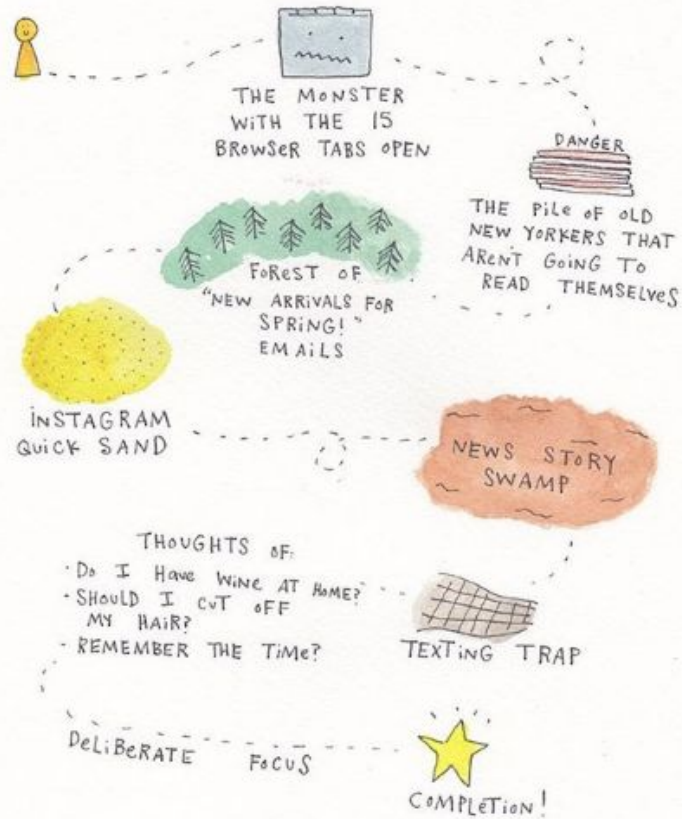 THE MONSTER
WITH THE 15
BROWSER TABS OPEN
DANGER
THE PILE OF OLD
NEW YORKERS THAT
AREN'T GOING TO
READ THEMSELVES
FOREST OF
"NEW ARRIVALS FOR
SPRING!"
EMAILS
INSTAGRAM
QUICK SAND
NEWS STORY
SWAMP
TEXTING TRAP
THOUGHTS OF:
· DO I HAVE WINE AT HOME?
- SHOULD I CUT OFF
MY HAIR?
- REMEMBER THE TIME?
DELIBERATE FOCUS
COMPLETION!